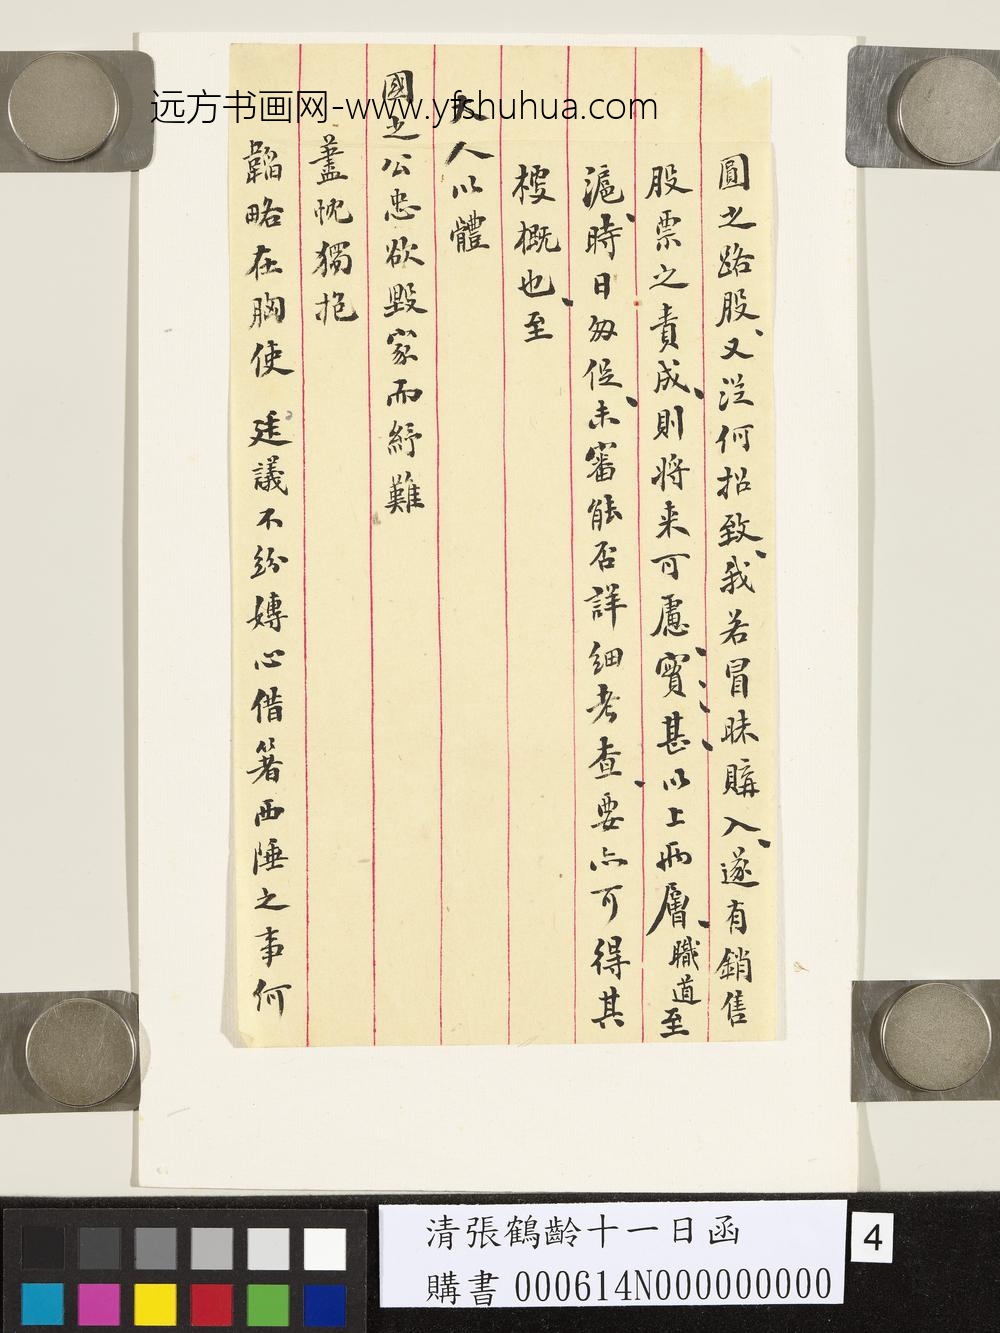 远方书画网-www.yfshuhua.com
圓之路股又從何招致我若冒昧購入遂有銷售
股票之責成則將来可慮實甚以上兩層職道至
滬時日匆促未審能否詳細考查要亦可得其
梗概也至
大人以體
國之公忠欲毀家而紓難
蓋忱獨抱
韜略在胸使 廷議不紛媾心借箸西陲之事何
清張鶴齡十一日函
購書 000614N000000000
4